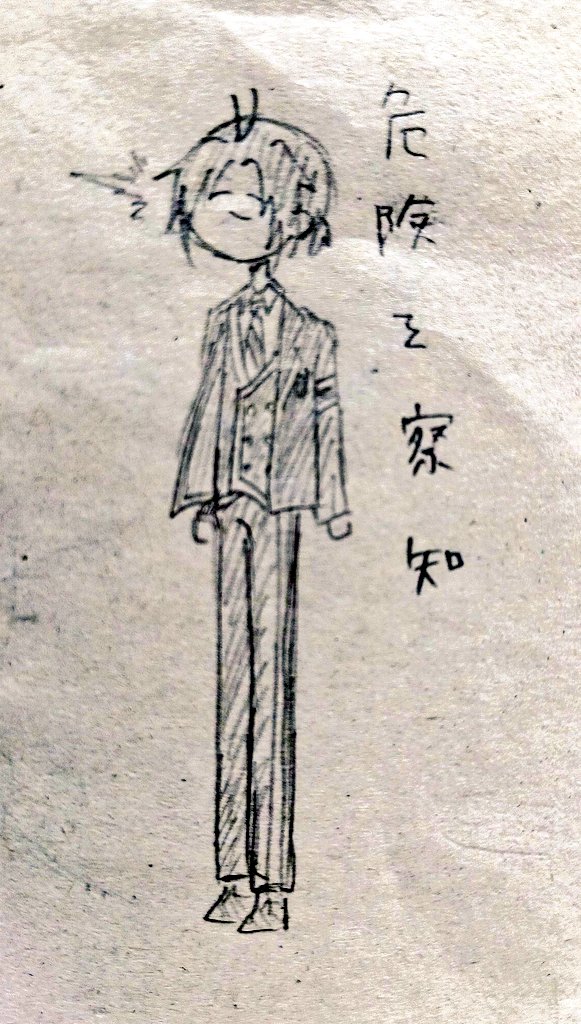 危険を察知